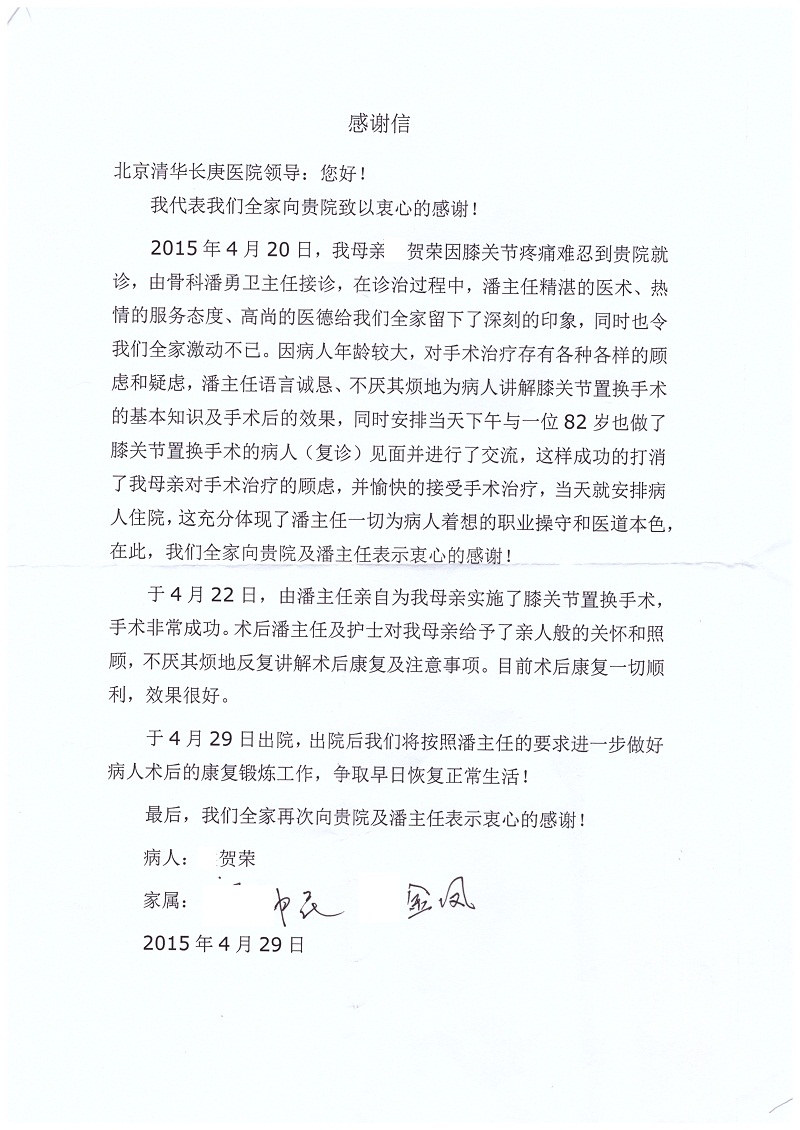 感谢信
北京清华长庚医院领导：您好！
我代表我们全家向贵院致以衷心的感谢！
2015 年 4 月 20 日，我母亲 贺荣因膝关节疼痛难忍到贵院就
诊，由骨科潘勇卫主任接诊，在诊治过程中，潘主任精湛的医术、热
情的服务态度、高尚的医德给我们全家留下了深刻的印象，同时也令
我们全家激动不已。因病人年龄较大，对手术治疗存有各种各样的顾
虑和疑虑，潘主任语言诚恳、不厌其烦地为病人讲解膝关节置换手术
的基本知识及手术后的效果，同时安排当天下午与一位 82 岁也做了
膝关节置换手术的病人（复诊）见面并进行了交流，这样成功的打消
了我母亲对手术治疗的顾虑，并愉快的接受手术治疗，当天就安排病
人住院，这充分体现了潘主任一切为病人着想的职业操守和医道本色，
在此，我们全家向贵院及潘主任表示衷心的感谢！
于 4 月 22 日，由潘主任亲自为我母亲实施了膝关节置换手术，
手术非常成功。术后潘主任及护士对我母亲给予了亲人般的关怀和照
顾，不厌其烦地反复讲解术后康复及注意事项。目前术后康复一切顺
利，效果很好。
于 4 月 29 日出院，出院后我们将按照潘主任的要求进一步做好
病人术后的康复锻炼工作，争取早日恢复正常生活！
最后，我们全家再次向贵院及潘主任表示衷心的感谢！
病人： 贺荣
家属： 金凤
2015 年 4 月 29 日